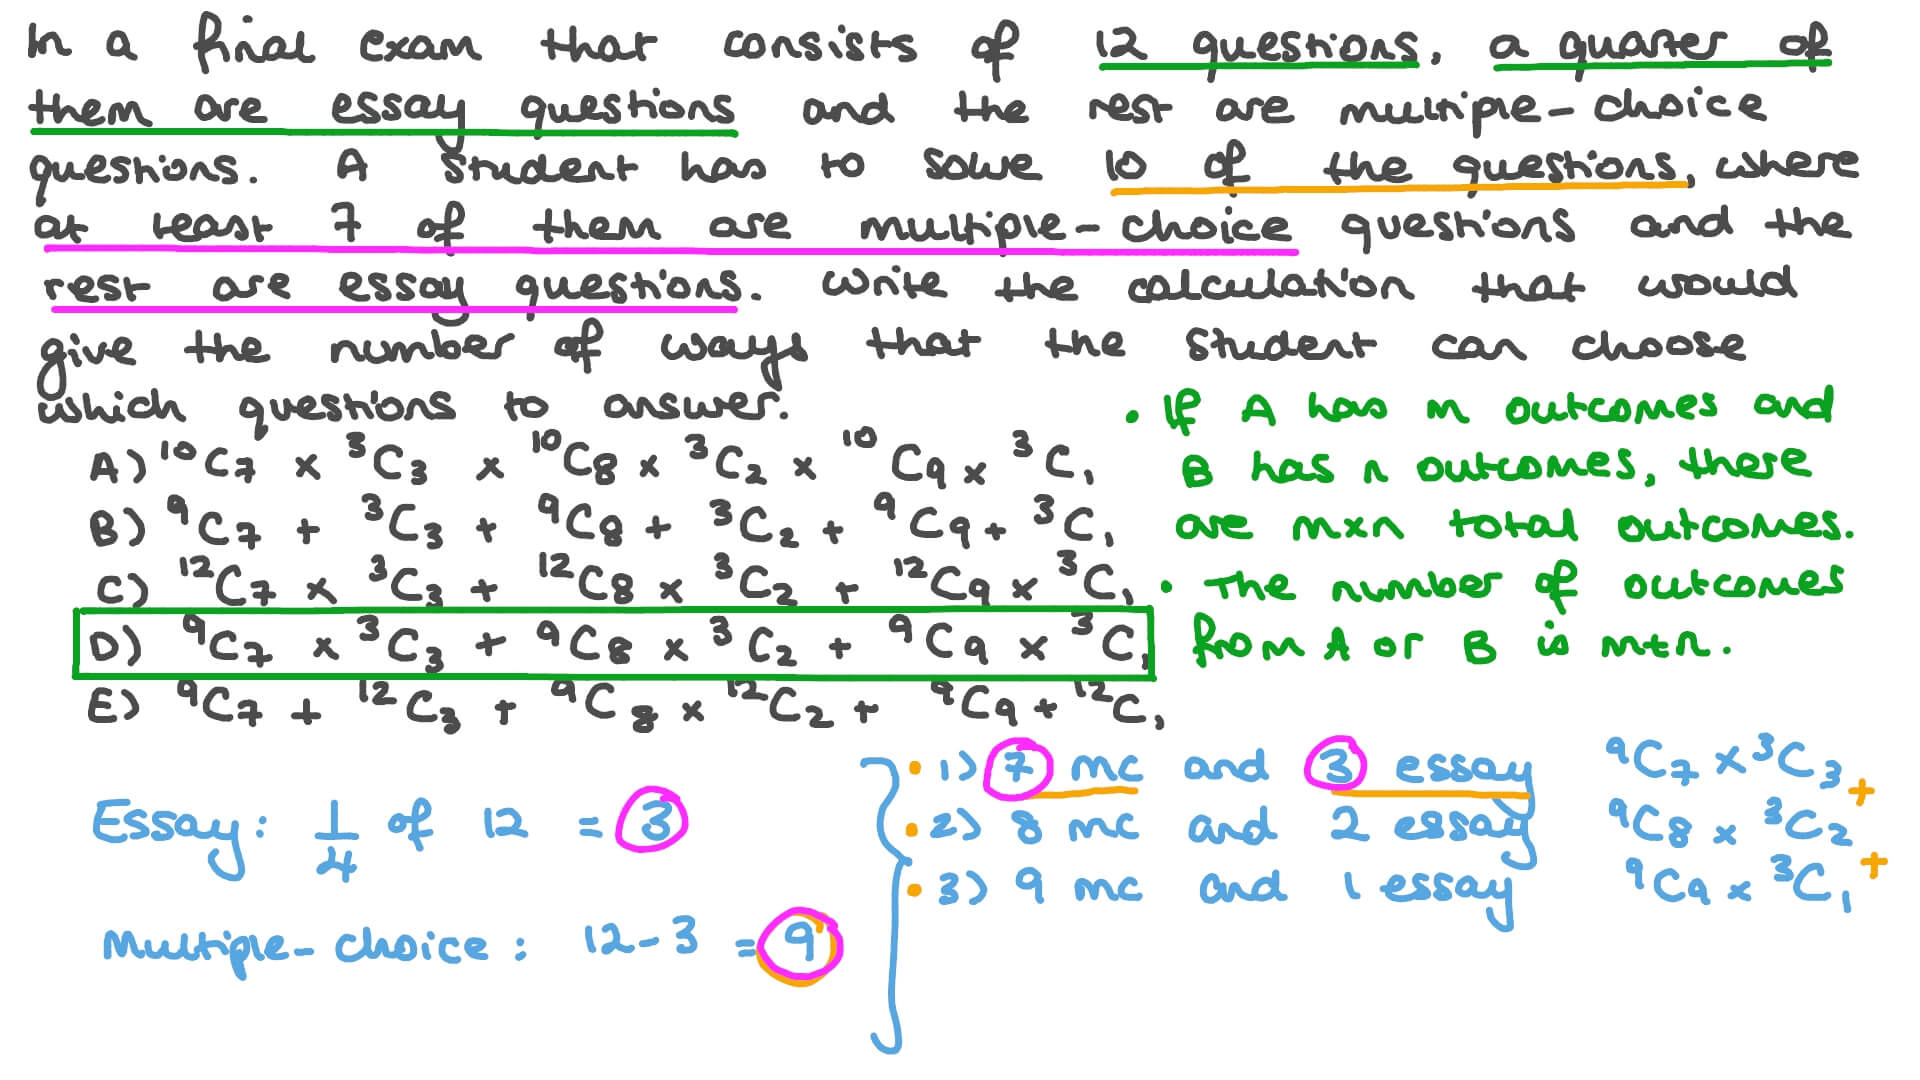 In a final exam that consists of 12 questions, a quarter of
them are essay questions and the rest are multiple-choice
questions. A student has to solve 10 of the questions, where
at least 7 of them are multiple-choice questions and the
rest are essay questions. Write the calculation that would
give the number of ways that the student can choose
which questions to answer.
A) ¹⁰C₇ × ³C₃ × ¹⁰C₈ × ³C₂ × ¹⁰C₉ × ³C₁
B) ⁹C₇ + ³C₃ + ⁹C₈ + ³C₂ + ⁹C₉ + ³C₁
C) ¹²C₇ × ³C₃ + ¹²C₈ × ³C₂ + ¹²C₉ × ³C₁
D) ⁹C₇ × ³C₃ + ⁹C₈ × ³C₂ + ⁹C₉ × ³C₁
E) ⁹C₇ + ¹²C₃ + ⁹C₈ × ¹²C₂ + ⁹C₉ + ¹²C₁
• If A has m outcomes and
B has n outcomes, there
are m×n total outcomes.
• The number of outcomes
from A or B is m+n.
Essay: 1/4 of 12 = 3
Multiple-choice: 12-3 = 9
• 1) 7 mc and 3 essay ⁹C₇ × ³C₃ +
• 2) 8 mc and 2 essay ⁹C₈ × ³C₂ +
• 3) 9 mc and 1 essay ⁹C₉ × ³C₁